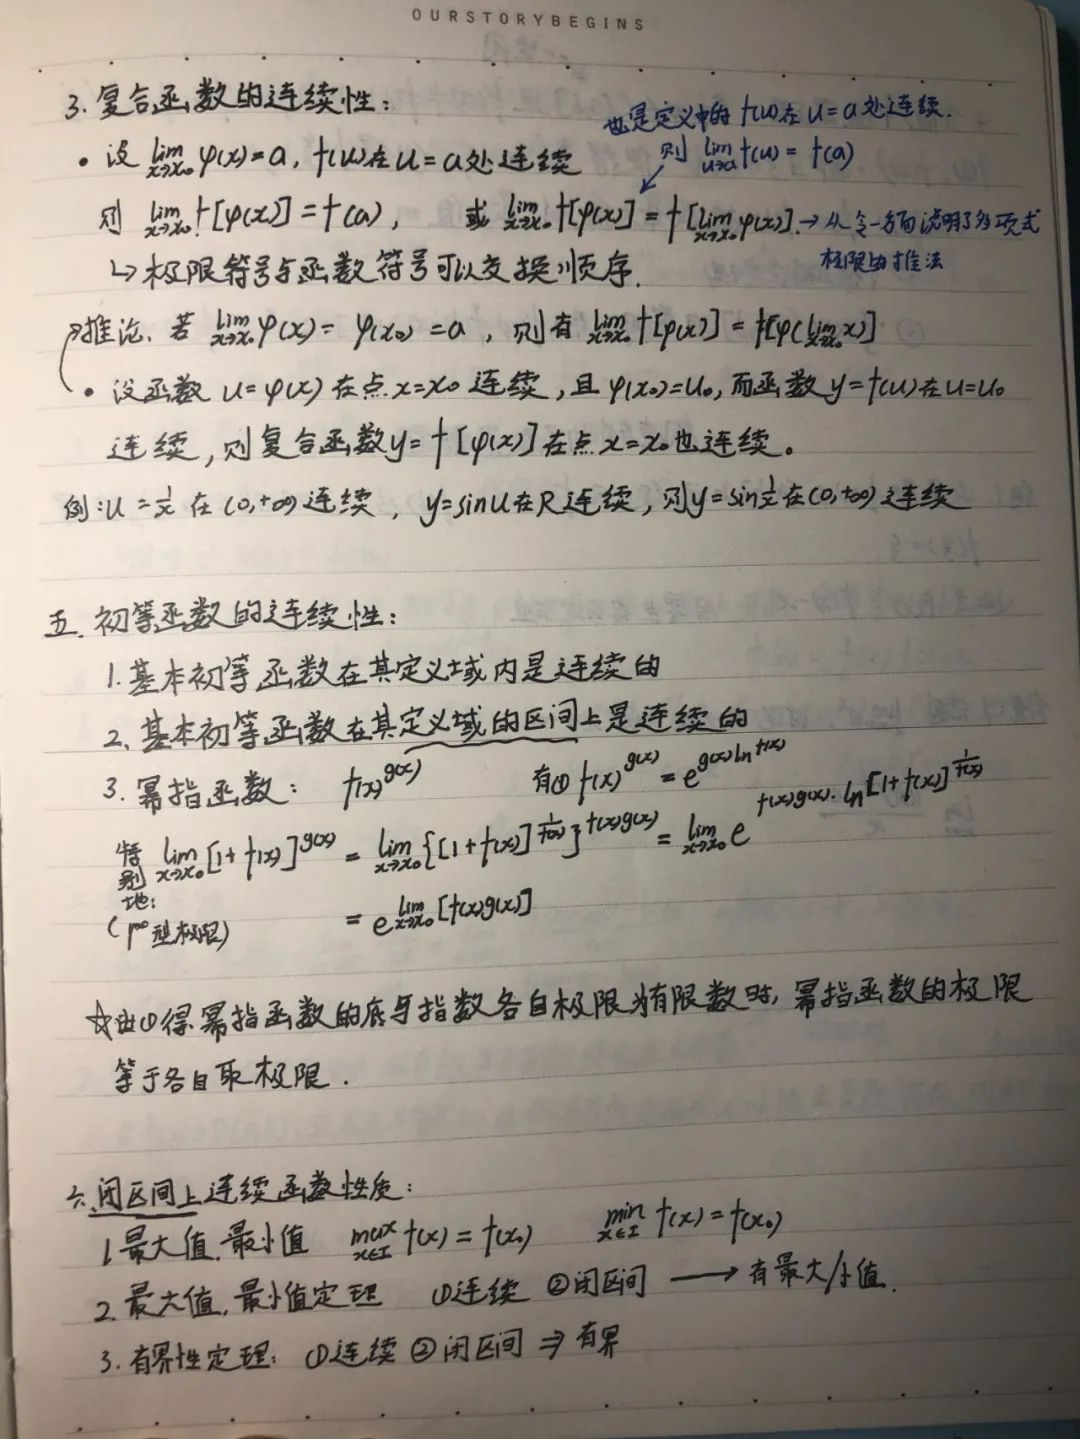 OURSTORYBEGINS
3. 复合函数的连续性:
也是定义中的 f(u)在 u=a 处连续.
• 设 lim x→x₀ φ(x)=a, f(u)在 u=a处连续
则 lim u→a f(u) = f(a)
则 lim x→x₀ f[φ(x)] = f(a), 或 lim x→x₀ f[φ(x)] = f[lim x→x₀ φ(x)]. → 从令一方面说明了多项式
极限的推法
↳ 极限符号与函数符号可以交换顺序.
推论. 若 lim x→x₀ φ(x) = φ(x₀) = a, 则有 lim x→x₀ f[φ(x)] = f[φ(lim x→x₀ x)]
• 设函数 u=φ(x) 在点 x=x₀ 连续, 且 φ(x₀)=u₀, 而函数 y=f(u)在u=u₀
连续, 则复合函数y=f[φ(x)]在点 x=x₀也连续。
例: u=1/x 在 (0,+∞) 连续, y=sinu在R连续, 则y=sin1/x在(0,+∞)连续
五. 初等函数的连续性:
1. 基本初等函数在其定义域内是连续的
2. 基本初等函数在其定义域的区间上是连续的
3. 幂指函数: f(x)^g(x) 有① f(x)^g(x) = e^g(x)ln f(x)
特别地: lim x→x₀ [1+f(x)]^g(x) = lim x→x₀ {[1+f(x)]^1/f(x)}^f(x)g(x) = lim x→x₀ e^f(x)g(x)·ln[1+f(x)]^1/f(x)
(1^∞型极限) = e^lim x→x₀ [f(x)g(x)]
☆由①得幂指函数的底与指数各自极限为有限数时, 幂指函数的极限
等于各自取极限.
六. 闭区间上连续函数性质:
1. 最大值, 最小值 max x∈I f(x) = f(x₀) min x∈I f(x) = f(x₀)
2. 最大值, 最小值定理 ①连续 ②闭区间 → 有最大/小值.
3. 有界性定理: ①连续 ②闭区间 ⇒ 有界